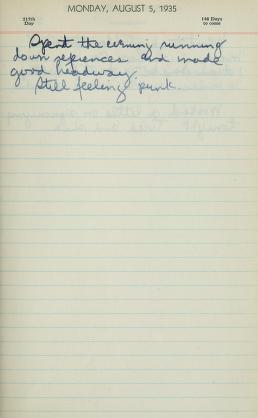 MONDAY, AUGUST 5, 1935
217th
Day
148 Days
to come
Spent the evening running
down references and made
good headway.
Still feeling punk.